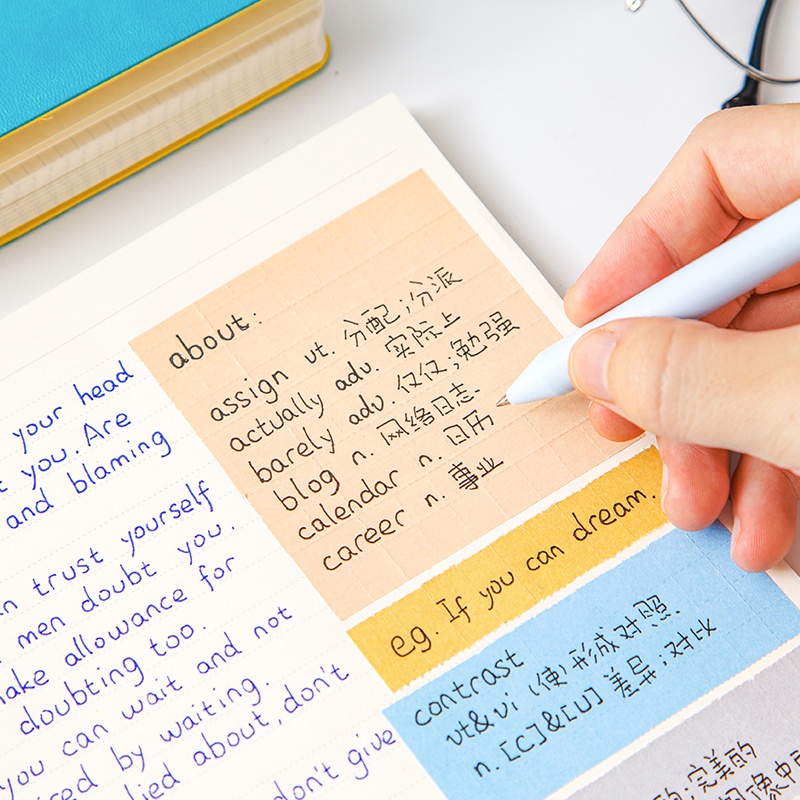 your head
you. Are
and blaming
trust yourself
men doubt you.
make allowance for
doubting too.
you can wait and not
by waiting.
lied about, don't
don't give
about:
assign vt. 分配;分派
actually adv. 实际上
barely adv. 仅仅;勉强
blog n. 网络日志
calendar n. 日历
career n. 事业
eg. If you can dream.
contrast
vt&vi (使)形成对照.
n. [C]&[U] 差异;对比
完美的